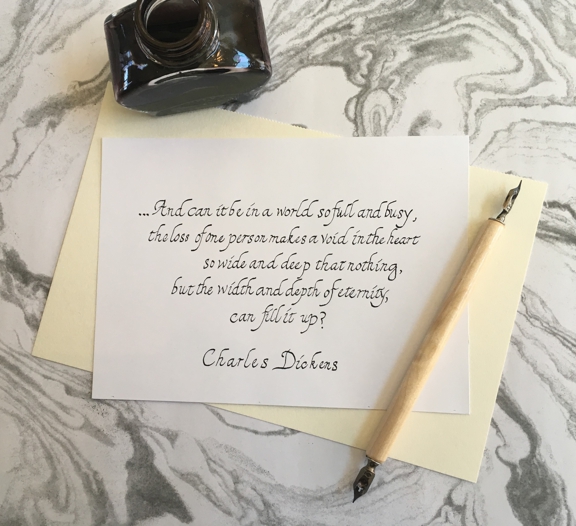 ...And can it be in a world so full and busy,
the loss of one person makes a void in the heart
so wide and deep that nothing,
but the width and depth of eternity,
can fill it up?
Charles Dickens